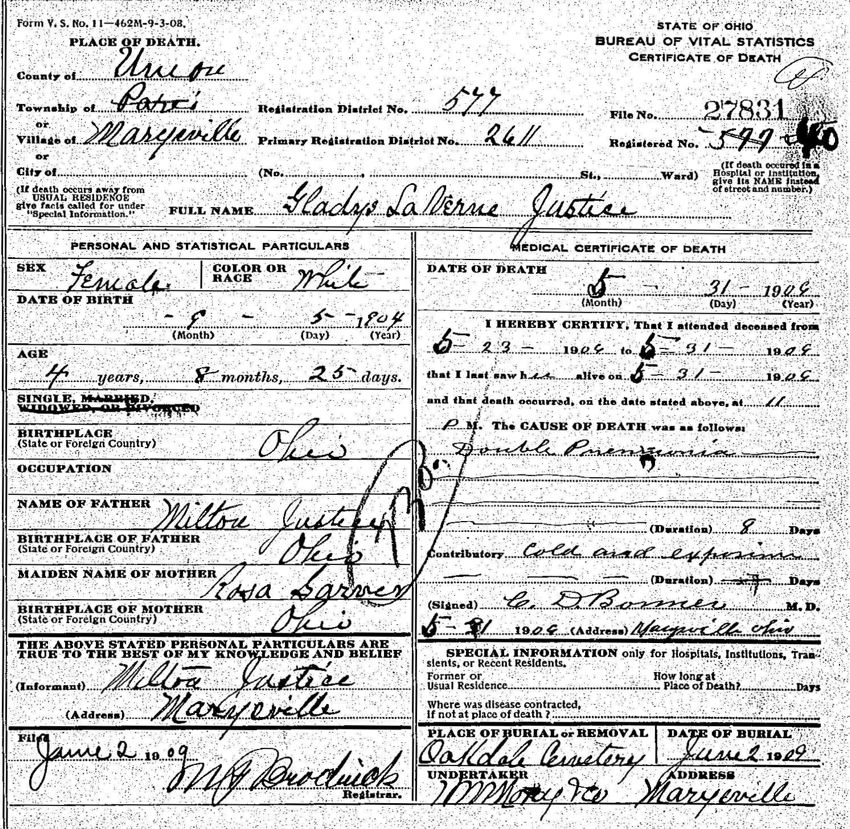 Form V. S. No. 11—462M-9-3-08.
STATE OF OHIO
BUREAU OF VITAL STATISTICS
CERTIFICATE OF DEATH
PLACE OF DEATH.
County of Union
Township of Paris Registration District No. 577 File No. 27831
or
Village of Marysville Primary Registration District No. 2611 Registered No. 577 40
or
City of (No. , St., Ward) (If death occured in a Hospital or Institution, give its NAME instead of street and number.)
(If death occurs away from USUAL RESIDENCE give facts called for under "Special Information.")
FULL NAME Gladys LaVerne Justice
PERSONAL AND STATISTICAL PARTICULARS
SEX Female COLOR OR RACE White
DATE OF BIRTH
- 9 - 5 - 1904
(Month) (Day) (Year)
AGE
4 years, 8 months, 25 days.
SINGLE, MARRIED,
WIDOWED, OR DIVORCED
BIRTHPLACE
(State or Foreign Country) Ohio
OCCUPATION
NAME OF FATHER Milton Justice
BIRTHPLACE OF FATHER
(State or Foreign Country) Ohio
MAIDEN NAME OF MOTHER Rosa Sarver
BIRTHPLACE OF MOTHER
(State or Foreign Country) Ohio
THE ABOVE STATED PERSONAL PARTICULARS ARE
TRUE TO THE BEST OF MY KNOWLEDGE AND BELIEF
(Informant) Milton Justice
(Address) Marysville
Filed June 2 1909
Registrar.
MEDICAL CERTIFICATE OF DEATH
DATE OF DEATH
5 - 31 - 1909
(Month) (Day) (Year)
I HEREBY CERTIFY, That I attended deceased from
5 - 23 - 1909 to 5 - 31 - 1909
that I last saw her alive on 5 - 31 - 1909
and that death occurred, on the date stated above, at 11
P M. The CAUSE OF DEATH was as follows:
Double Pneumonia
(Duration) 8 Days
Contributory Cold and exposure
(Duration) Days
(Signed) C. D. Bonner M. D.
5 - 31 1909 (Address) Marysville Ohio
SPECIAL INFORMATION only for Hospitals, Institutions, Tran-
sients, or Recent Residents.
Former or
Usual Residence
How long at
Place of Death? Days
Where was disease contracted,
if not at place of death ?
PLACE OF BURIAL or REMOVAL DATE OF BURIAL
Oakdale Cemetery June 2 1909
UNDERTAKER ADDRESS
Marysville